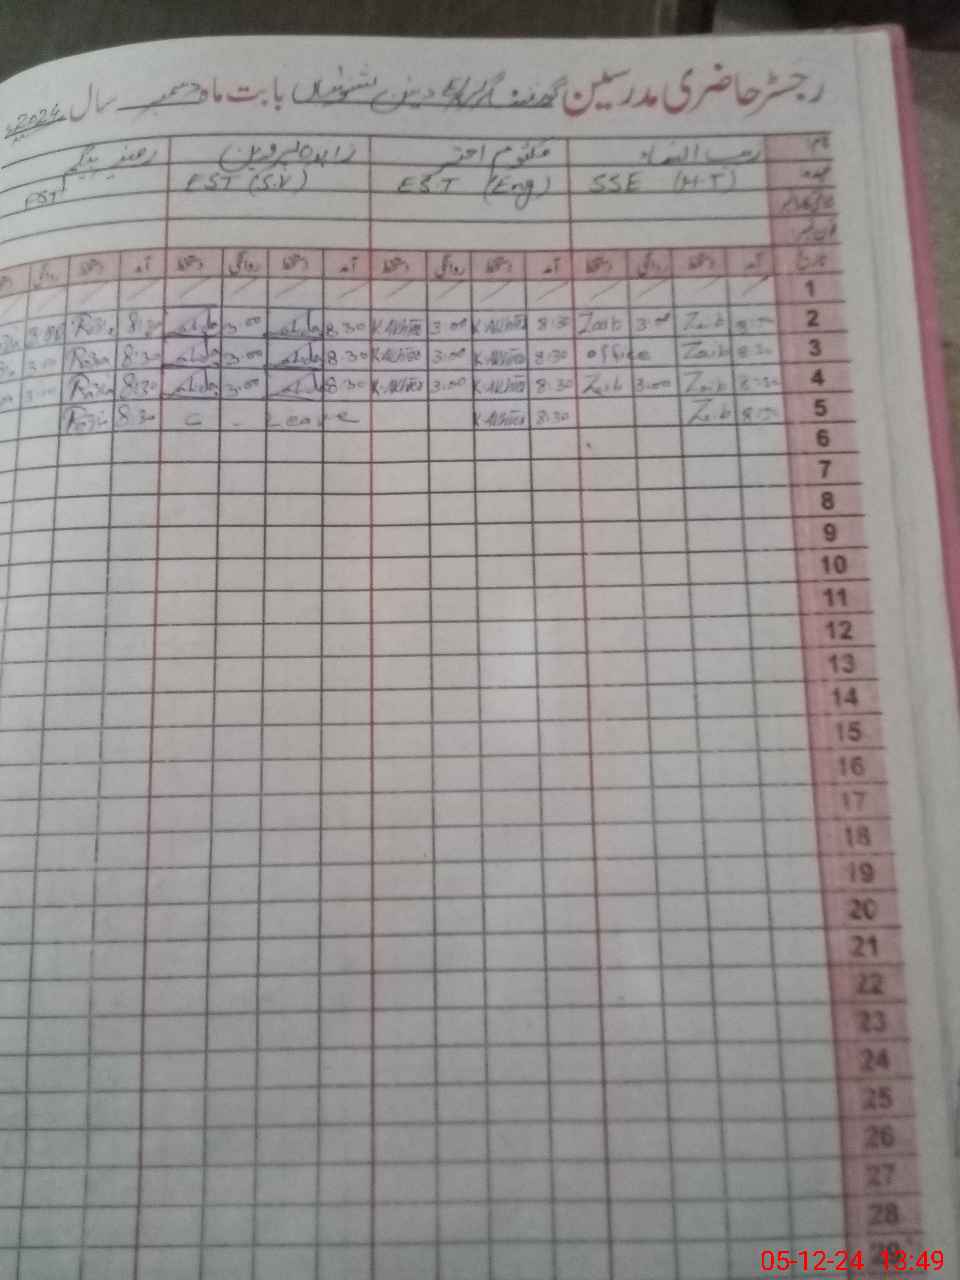 رجسٹر حاضری مدرسین گورنمنٹ گرلز بابت ماہ دسمبر سال 2024ء
نام زیب النساء کلثوم اختر زاہدہ پروین رضیہ بیگم
عہدہ SSE (H.T) EST (Eng) EST (S.V) EST
تاریخ آمد دستخط روانگی دستخط آمد دستخط روانگی دستخط آمد دستخط روانگی دستخط آمد دستخط روانگی
1
2 8:30 Zaib 3:00 Zaib 8:30 K.Akhtar 3:00 K.Akhtar 8:30 3:00 8:30 Razia 3:00
3 8:30 Zaib office 8:30 K.Akhtar 3:00 K.Akhtar 8:30 3:00 8:30 Razia 3:00
4 8:30 Zaib 3:00 Zaib 8:30 K.Akhtar 3:00 K.Akhtar 8:30 3:00 8:30 Razia 3:00
5 8:30 Zaib 8:30 K.Akhtar C - Leave 8:30 Razia
6
7
8
9
10
11
12
13
14
15
16
17
18
19
20
21
22
23
24
25
26
27
28
29
05-12-24 13:49